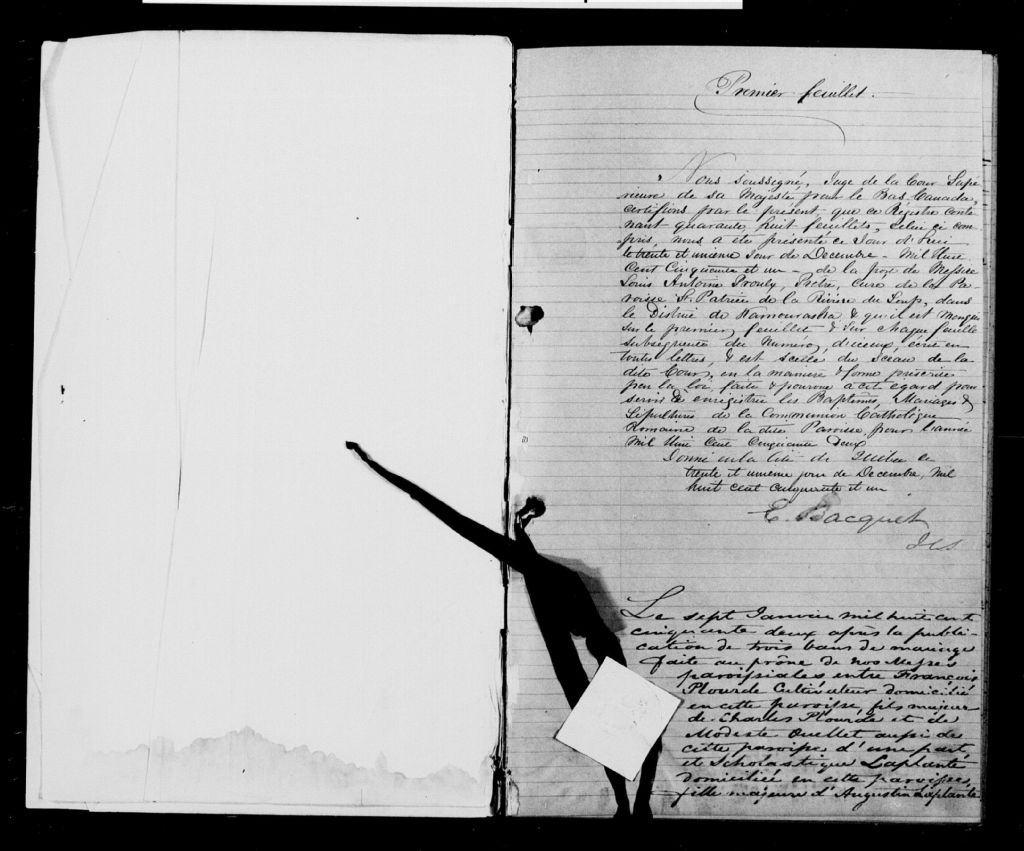 Premier feuillet.
Nous soussigné, Juge de la Cour Supé
rieure de sa Majesté pour le Bas Canada,
certifions par le présent, que ce Régistre conte
nant quarante huit feuillets, celui ci com
pris, nous a été présenté ce Jour d'hui
le trente et unième Jour de Decembre - Mil Huit
Cent Cinquante et un - de la part de Messire
Louis Antoine Proulx, Prètre, curé de la Pa
roisse St. Patrice de la Rivière du Loup, dans
le District de Kamouraska & qu'il est
sur le premier feuillet & sur chaque feuillet
subséquent du Numéro d'iceux, écrit en
toutes lettres, & est scellé du sceau de la
dite Cour, en la manière & forme prescrite
par la loi faite & pourvue à cet égard pour
servir à enregistrer les Baptêmes, Mariages &
Sépultures de la Communion Catholique
Romaine de la dite Paroisse, pour l'année
Mil Huit Cent Cinquante Deux
Donné en la Cité de Québec ce
trente et unième jour de Decembre, Mil
huit cent cinquante et un
E. Bacquet
JCS
Le sept Janvier mil huit cent
cinquante deux après la publi-
cation de trois bans de mariage
faite au prône de nos Messes
paroissiales entre François
Plourde Cultivateur domicilié
en cette paroisse, fils majeur
de Charles Plourde et de
Modeste Ouellet aussi de
cette paroisse d'une part
et Scholastique Laplante
domiciliée en cette paroisse,
fille majeure d'Augustin Laplante